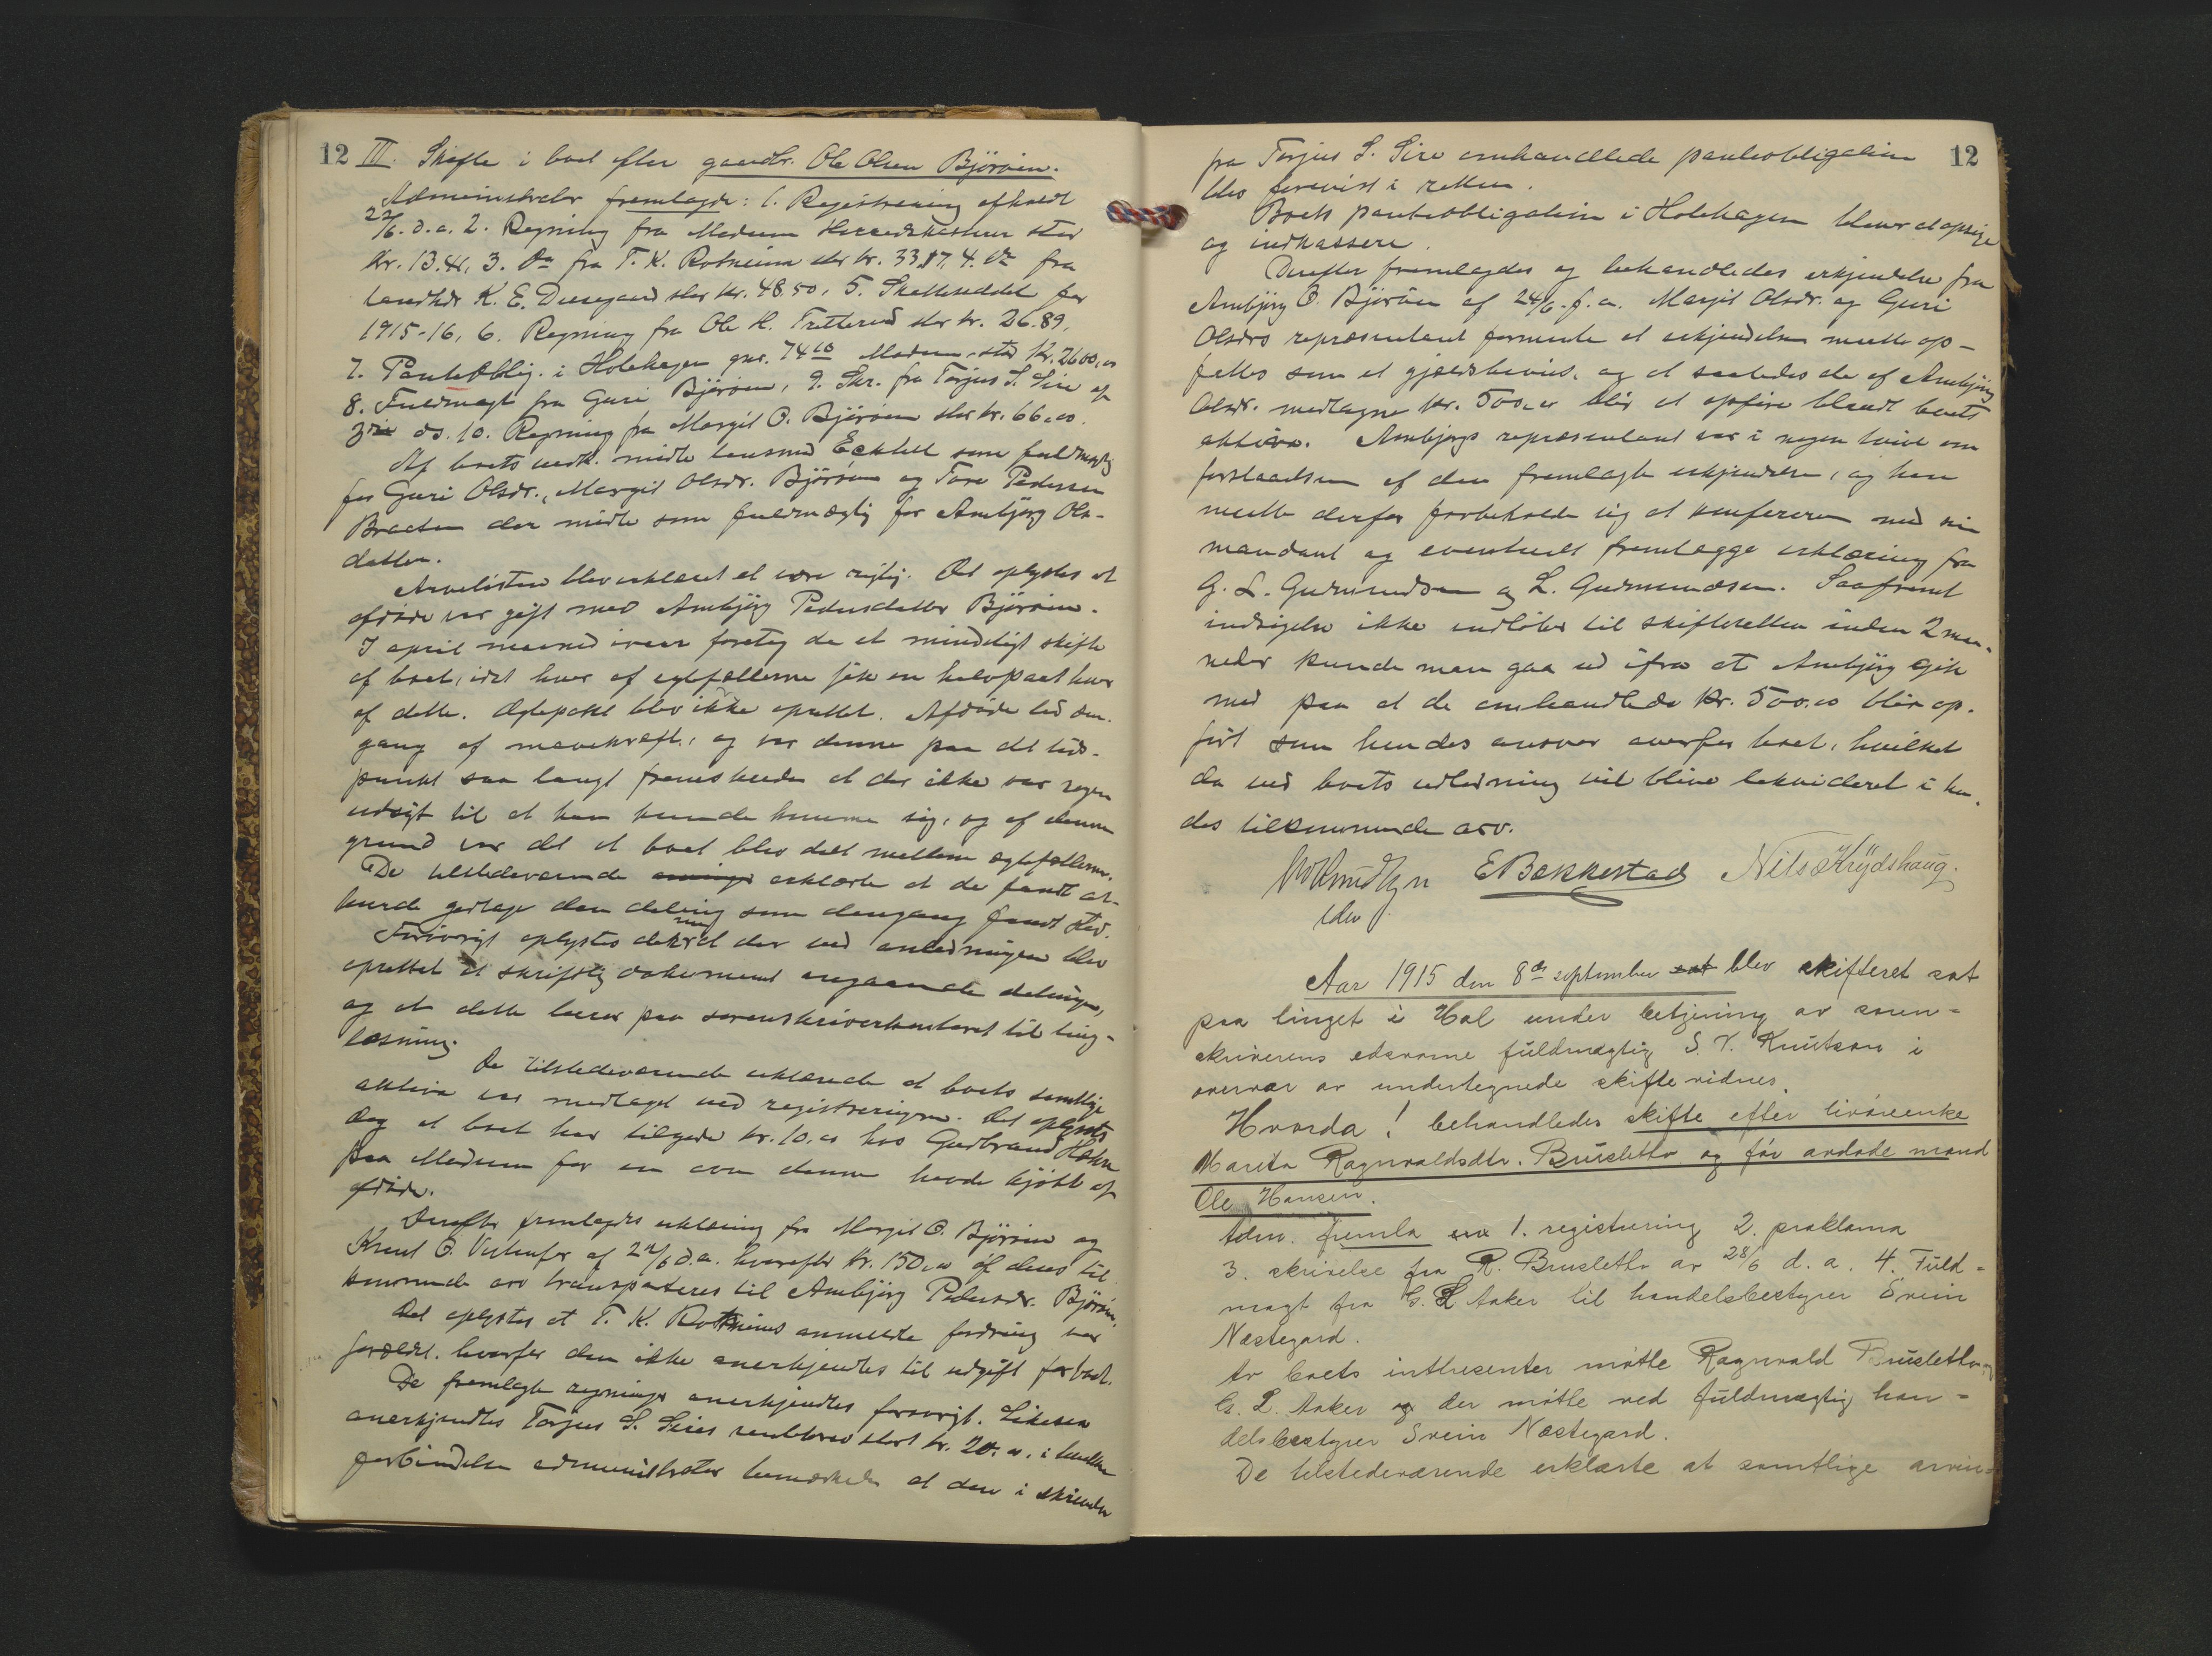 12 III. Skifte i boet efter gaardbr. Ole Olsen Björöien.
Administrator fremlagde: 1. Registrering afholdt
22/6. d.a. 2. Regning fra Modum Herredskasserer stor
Kr. 13.41, 3. do fra T. K. Rotneim stor kr. 33.17, 4. do fra
landhdr K. E. stor kr. 48.50, 5. Skatteseddel for
1915-16, 6. Regning fra Ole H. Tretterud stor kr. 26.89,
7. Panteoblig. i Holehagen gnr. 74 Modum, stor Kr. 2600,00
8. Fuldmagt fra Guri Björöien, 9. Skr. fra Torjus S. Sire af
3die ds. 10. Regning fra Margit O. Björöien stor kr. 66.00.
Af boets vedk. mödte lensmand som fuldmægtig
for Guri Olsdr., Margit Olsdr. Björöien og Tore Pedersen
Braaten der mödte som fuldmægtig for Ambjörg Ols-
datter.
Arvelisten blev erklæret at være rigtig. Det oplystes at
afdöde var gift med Ambjörg Pedersdatter Björöien.
I april maaned ivaar foretog de et mindeligt skifte
af boet, idet hver af egtefællerne fik en halvpart hver
af dette. Ægtepakt blev ikke oprettet. Afdöde led den-
gang af mavekræft, og var denne paa det tids-
punkt saa langt fremskreden at der ikke var nogen
udsigt til at han kunde komme sig, og af denne
grund var det at boet blev delt mellem ægtefællerne.
De tilstedeværende erklærte at de fandt at
burde godtage den deling som dengang fandt sted.
Forövrigt oplystes det at der ved anledningen blev
oprettet et skriftlig dokument angaaende delingen,
og at dette beror paa sorenskriverkontoret til ting-
læsning.
De tilstedeværende erklærede at boets samtlige
aktiva var medtaget ved registreringen. Det oplystes
dog at boet har tilgode kr. 10.00 hos Gudbrand
paa Modum for en ovn denne havde kjöbt af
afdöde.
Derefter fremlagdes erklæring fra Margit O. Björöien og
Knut O. af 22/6 d.a. hvorefter kr. 150,00 af deres til-
kommende arv transporteres til Ambjörg Pedersdr. Björöien.
Det oplystes at T. K. Rotneims anmeldte fordring var
forældet, hvorfor den ikke anerkjendtes til udgift for boet.
De fremlagte regninger anerkjendtes forövrigt. Likesaa
anerkjendtes Torjus S. Sires rentekrav stort kr. 20.00, i hvilken
forbindelse administrator bemerkede at den i skrivelsen
12
fra Torjus S. Sire omhandlede panteobligation
blev forevist i retten.
Boets panteobligation i Holehagen blev at opsige
og indkassere.
Derefter fremlagdes og behandledes erkjendelse fra
Ambjörg O. Björöien af 24/6. f.a. Margit Olsdr. og Guri
Olsdrs repræsentant formente at erkjendelsen maatte op-
fattes som et gjældsbevis, og at saaledes de af Ambjörg
Olsdr. medtagne kr. 500,00 blir at opföre blandt boets
aktiva. Ambjörgs repræsentant var i nogen tvivl om
forstaaelsen af den fremlagte erkjendelse, og han
maatte derfor forbeholde sig at konferere med sin
mandant og eventuelt fremlægge erklæring fra
G. L. Gudmundsen og L. Gudmundsen. Saafremt
indsigelse ikke indlöber til skifteretten inden 2 maa-
neder kunde man gaa ud ifra at Ambjörg gik
med paa at de omhandlede kr. 500.00 blir op-
fört som hendes ansvar overfor boet, hvilket
da ved boets utlodning vil blive lekvideret i hen-
des tilkommende arv.
E Bækkestad Nils Krydshaug.
Aar 1915 den 8de september sat blev skifteret sat
paa tinget i Hol under betjening av soren-
skriverens edsvorne fuldmægtig S. V. Knutson i
overvær av undertegnede skiftevidner.
Hvorda! behandledes skifte efter livöreenke
Marita Ragnvaldsdtr. Brusletto og för avdöde mand
Ole Hansen.
Adm. fremla 1. registrering 2. proklama
3. skrivelse fra R. Brusletto av 28/6 d. a. 4. Fuld-
magt fra G. L Aaker til handelsbestyrer Svein
Nestegard.
Av boets intresenter mötte Ragnvald Brusletto, og
G. L. Aaker og der mötte ved fuldmægtig han-
delsbestyrer Svein Nestegard.
De tilstedeværende erklærte at samtlige arvin-